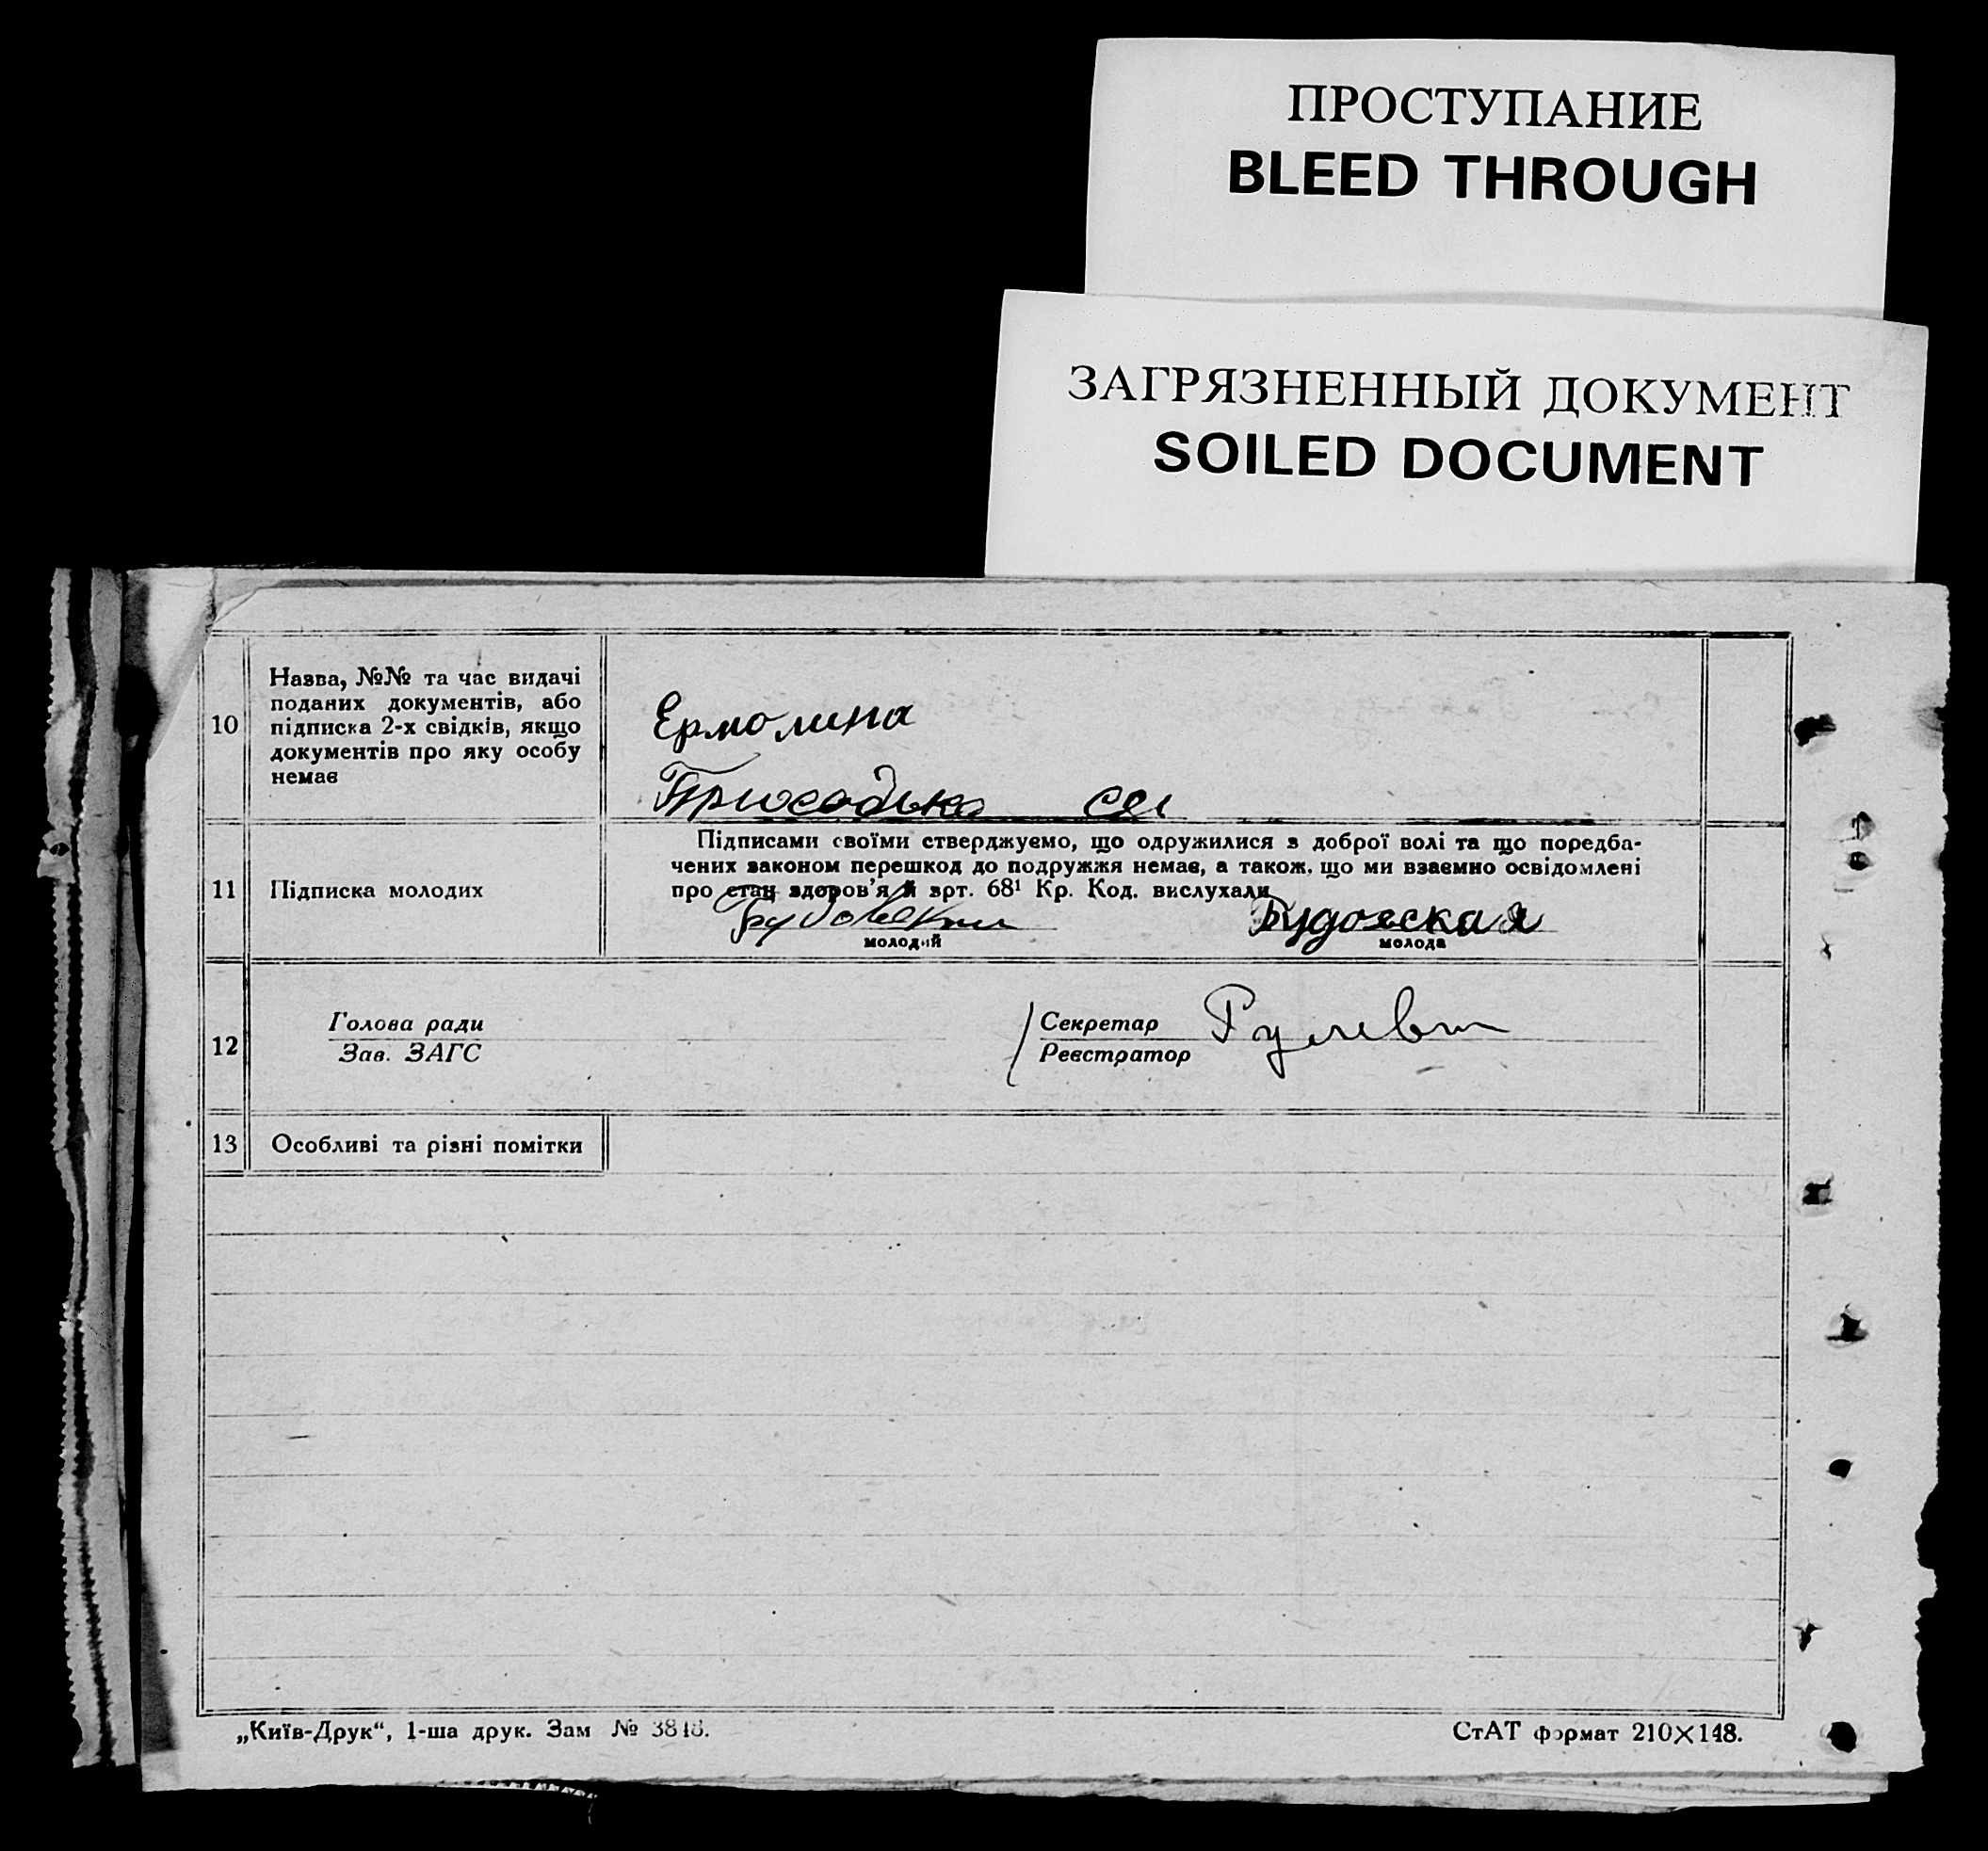 ПРОСТУПАНИЕ
BLEED THROUGH
ЗАГРЯЗНЕННЫЙ ДОКУМЕНТ
SOILED DOCUMENT
10
Назва, №№ та час видачі
поданих документів, або
підписка 2-х свідків, якщо
документів про яку особу
немає
Ермолина
11
Підписка молодих
Підписами своїми стверджуємо, що одружилися з доброї волі та що поредба-
чених законом перешкод до подружжя немає, а також, що ми взаємно освідомлені
про стан здоров'я й арт. 68¹ Кр. Код. вислухали
Будовская
молодий
молода
12
Голова ради
Зав. ЗАГС
Секретар
Реєстратор
13
Особливі та різні помітки
„Київ-Друк“, 1-ша друк. Зам №
СтАТ формат 210×148.